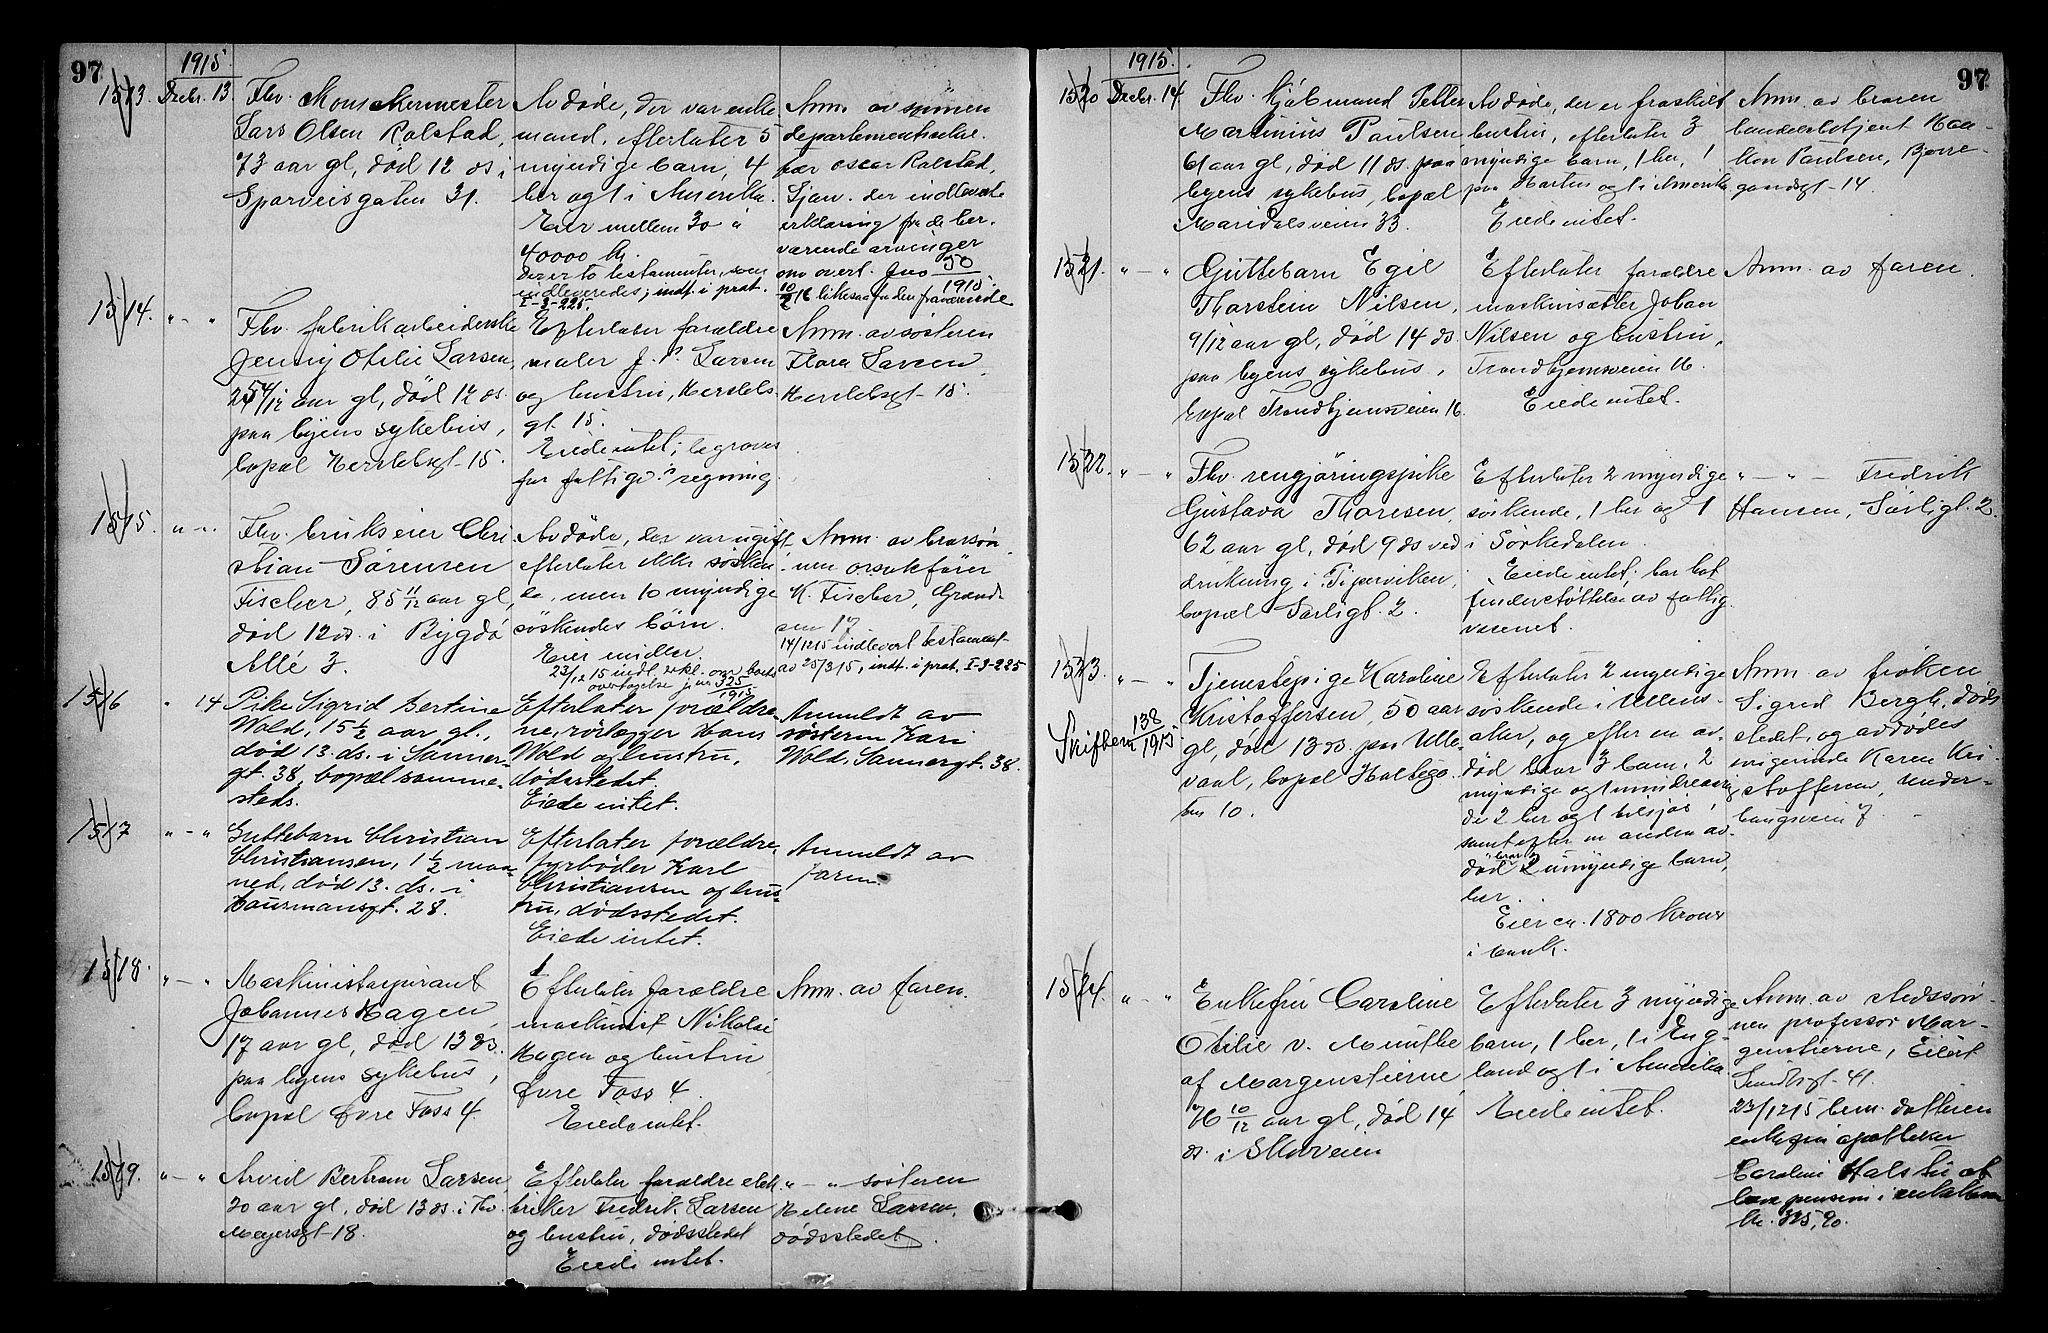 97
1915
1513. Decbr. 13
Fhv.
Lars Olsen Ralstad,
73 aar gl, död 12 ds i
Sparveisgaten 31.
Avdöde, der var enke-
mand, efterlater 5
myndige barn, 4
her og 1 i Amerika.
Eier mellem 30 à
40000 kr.
Der er to testamenter, som
indleveredes; indt. i prot.
I-3-225.
Anm. av sönnen
departementssekre-
tær Oscar Ralstad,
Ljan. der indleverte
erklæring fra de her-
værende arvinger
om overt. Jno 50
1915
10/2 16 likesaa fra den fraværende
1514. " - "
Fhv. fabrikarbeiderske
Jenny Otilie Larsen,
aar gl, död 12 ds.
paa byens sykehus,
bopæl Herslebsgt. 15.
Efterlater forældre
maler J. P. Larsen
og hustru, Herslebs-
gt. 15.
Eiede intet; begraves
for fattigv. regning.
Anm. av søsteren
Flora Larsen,
Herslebsgt. 15.
1515. " - "
Fhv. brukseier Chri-
stian Sörensen
Fischer, 85 11/12 aar gl,
död 12 ds. i Bygdö
Allé 3.
Avdöde, der var ugift,
efterlater ikke sösken-
de, men 10 myndige
söskendes börn.
Eier midler.
23/12 15 indl. erkl. om boets
overtagelse jno 325
1915
Anm. av brorsön-
nen orsakförer
K. Fischer, Grænd-
sen 17.
14/12 15 indlevert testament
av 25/3 15, indt. i prot. I-3-225
1516 " 14
Pike Sigrid Bertine
Wold, 15 1/2 aar gl.,
död 13. ds. i Sanner-
gt. 38, bopæl samme-
steds.
Efterlater forældre-
ne, rörlægger Hans
Wold og hustru,
dödsstedet.
Eiede intet.
Anmeldt av
søsteren Kari
Wold, Sannergt. 38.
1517 " - "
Guttebarn Christian
Christiansen, 1 1/2 maa-
ned, död 13. ds. i
Hausmansgt. 28.
Efterlater forældre,
fyrböder Karl
Christiansen og hus-
tru, dödsstedet.
Eiede intet.
Anmeldt av
faren.
1518. " - "
Maskinistaspirant
Johannes Hagen,
17 aar gl, död 13 ds.
paa byens sykehus,
bopæl Övre Foss 4.
Efterlater forældre
maskinist Nikolai
Hagen og hustru
Övre Foss 4
Eiede intet.
Anm. av faren.
1519. " - "
Arvid Bertram Larsen,
20 aar gl, död 13 ds. i Th.
Meyersgt. 18.
Efterlater forældre elek-
triker Fredrik Larsen
og hustru, dödsstedet
Eiede intet.
" - " søsteren
Helene Larsen,
dödsstedet.
97
1915.
1520 Decbr. 14.
Fhv. kjöbmand Peller
Martinius Paulsen
61 aar gl, död 11 ds. paa
byens sykehus, bopæl
i Maridalsveien 33.
Avdöde, der er fraskilt
hustru, efterlater 3
myndige barn, 1 her, 1
paa Horten og 1 i Amerika
Eiede intet.
Anm. av broren
handelsbetjent Haa-
kon Paulsen, Bjerre-
gaardsgt. 14.
1521. " - "
Guttebarn Egil
Thorstein Nilsen,
9/12 aar gl, död 14 ds.
paa byens sykehus,
bopæl Trondhjemsveien 16.
Efterlater forældre
maskinsætter Johan
Nilsen og hustru,
Trondhjemsveien 16.
Eiede intet.
Anm. av faren.
1522. " - "
Fhv. rengjöringspike
Gustava Thoresen,
62 aar gl, död 9 ds ved
drukning i Pipervikén,
bopæl Sörligt. 2.
Efterlater 2 myndige
söskende, 1 her og 1
i Sörkedalen.
Eiede intet; har hat
understöttelse av fattig-
væsenet.
" - " - Fredrik
Hansen, Sörligt. 2.
1523. " - "
Skifteno 138
1915
Tjenestepige Karoline
Kristoffersen, 50 aar
gl, död 13 ds. paa Ulle-
vaal, bopæl Holtega-
ten 10.
Efterlater 2 myndige
söskende i Ullens-
aker, og efter en av-
död bror 3 barn, 2
myndige og 1 mindreaarig,
de 2 her og 1 tilsjös,
samt efter en anden av-
död bror 2 umyndige barn,
her.
Eier ca. 1800 kroner
i bank.
Anm. av fröken
Sigrid Bergh, döds-
stedet, og avdödes
svigerinde Karen Kri-
stoffersen, Under-
haugsveien 7
1524. " - "
Enkefru Caroline
Otilie v. Munthe
af Morgenstierne
76 10/12 aar gl, död 14
ds. i Skovveien
Efterlater 3 myndige
barn, 1 her, 1 i Eng-
land og 1 i Amerika.
Eiede intet.
Anm. av stedsön-
nen professor Mor-
genstierne, Eilert
Sundtsgt. 41.
23/12 15 bem. datteren
enkefru apotheker
Caroline Holst at
pension i enkekassen
kr. 335,20.